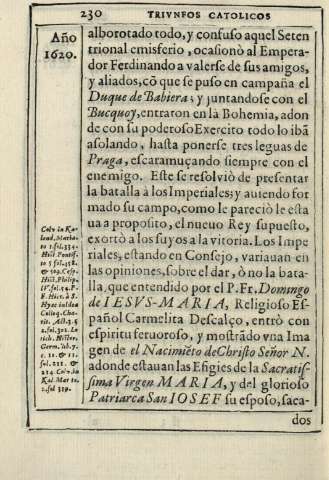 230 TRIVNFOS CATOLICOS
Año
1620.
alborotado todo, y confuso aquel Seten
trional emisferio, ocasionò al Empera-
dor Ferdinando a valerse de sus amigos,
y aliados, cõ que se puso en campaña el
Duque de Babiera; y juntandose con el
Bucquoy, entraron en la Bohemia, adon
de con su poderoso Exercito todo lo ibã
asolando, hasta ponerse tres leguas de
Praga, escaramuçando siempre con el
enemigo. Este se resolviò de presentar
la batalla à los Imperiales; y auiendo for
mado su campo, como le pareciò le esta
ua a proposito, el nueuo Rey supuesto,
exortò a los suyos a la vitoria. Los Impe
riales, estando en Consejo, variauan en
las opiniones, sobre el dar, ò no la bata-
lla, que entendido por el P. Fr. Domingo
de IESVS-MARIA, Religioso Es-
pañol Carmelita Descalço, entrò con
espiritu feruoroso, y mostrãdo vna Ima
gen de el Nacimiẽto de Christo Señor N.
adonde estauan las Efigies de la Sacratis-
sima Virgen MARIA, y del glorioso
Patriarca San IOSEF su esposo, saca-
dos
fol. 334.
Hist. Pontif.
to 5. fol.
& 509. Cesp.
Hist. Philip.
IV. fol. 54. P.
F. Hier. à S.
Hyac. in
Coleg.
2. fol.
Germ. lib. 7.
c. 11. & 12.
fol. 212. &
214
Kal. Mar to.
2. fol 329.